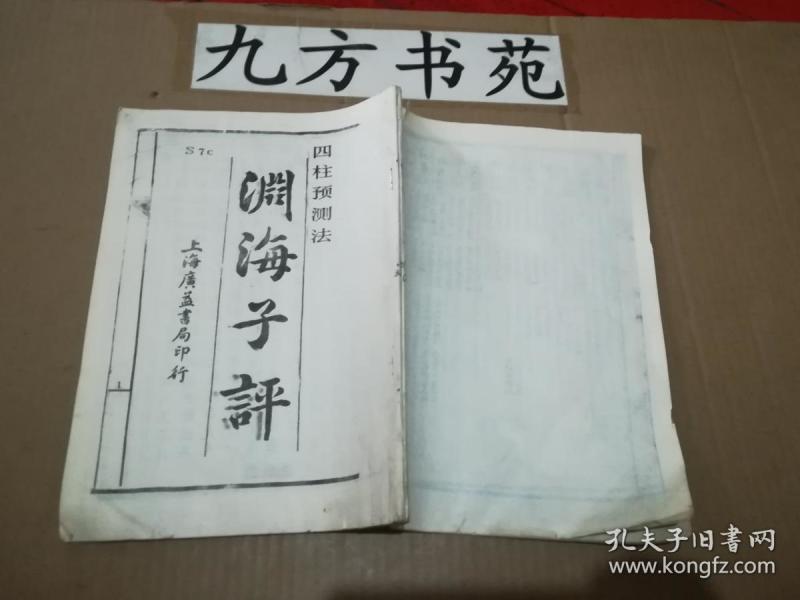 九方书苑
四柱预测法
渊海子評
上海廣益書局印行
S7c
孔夫子旧书网
www.kongfz.com